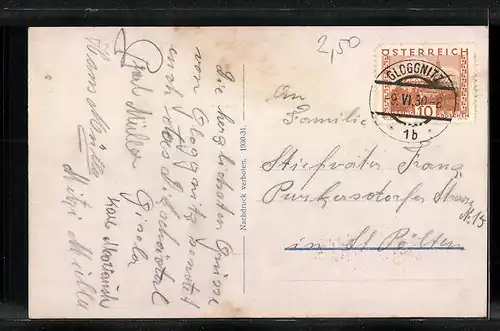 2,50
ÖSTERREICH
10
GLOGGNITZ
9.VI.30
1b
An
Familie
Stiefvater Franz
Purkersdorfer Strasse
Nr. 15
in St Pölten
Nachdruck verboten. 1930/31.
Die herzlichsten Grüsse
von Gloggnitz sendet
euch
Gisela
Karl Müller
Hans Müller
Mitzi Müller